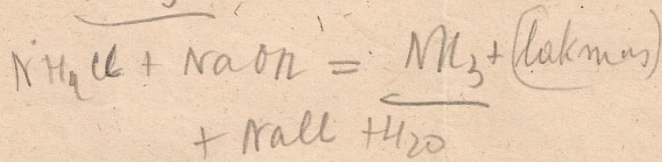 NH4Cl + NaOH = NH3 + (lakmus)
+ NaCl + H2O